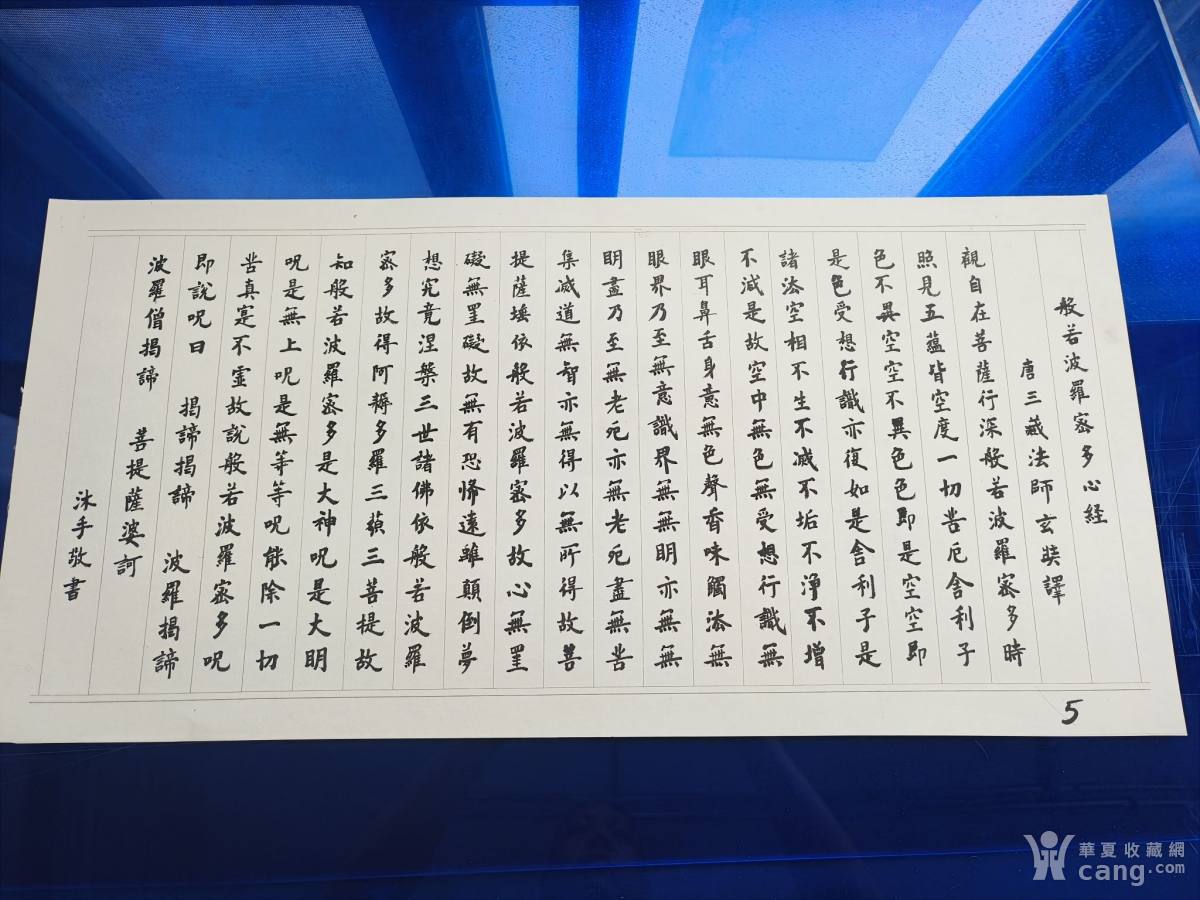 般若波羅蜜多心経
唐三藏法師玄奘譯
觀自在菩薩行深般若波羅蜜多時
照見五蘊皆空度一切苦厄舍利子
色不異空空不異色色即是空空即
是色受想行識亦復如是舍利子是
諸法空相不生不滅不垢不淨不增
不減是故空中無色無受想行識無
眼耳鼻舌身意無色聲香味觸法無
眼界乃至無意識界無無明亦無無
明盡乃至無老死亦無老死盡無苦
集滅道無智亦無得以無所得故菩
提薩埵依般若波羅蜜多故心無罣
礙無罣礙故無有恐怖遠離顛倒夢
想究竟涅槃三世諸佛依般若波羅
蜜多故得阿耨多羅三藐三菩提故
知般若波羅蜜多是大神呪是大明
呪是無上呪是無等等呪能除一切
苦真實不虛故說般若波羅蜜多呪
即說呪曰 揭諦揭諦 波羅揭諦
波羅僧揭諦 菩提薩婆訶
沐手敬書
5
華夏收藏網
cang.com